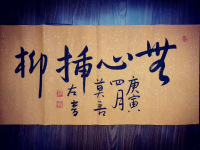 無心插柳
庚寅
四月
莫言
左書